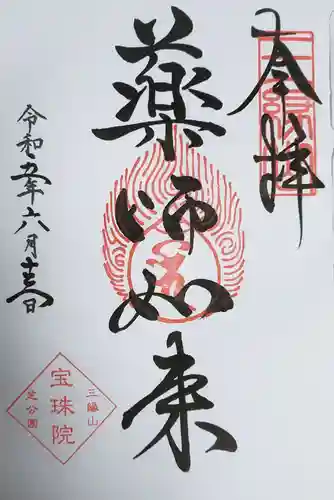 奉拝
薬師如来
令和五年六月十六日
三縁山
宝珠院
芝公園